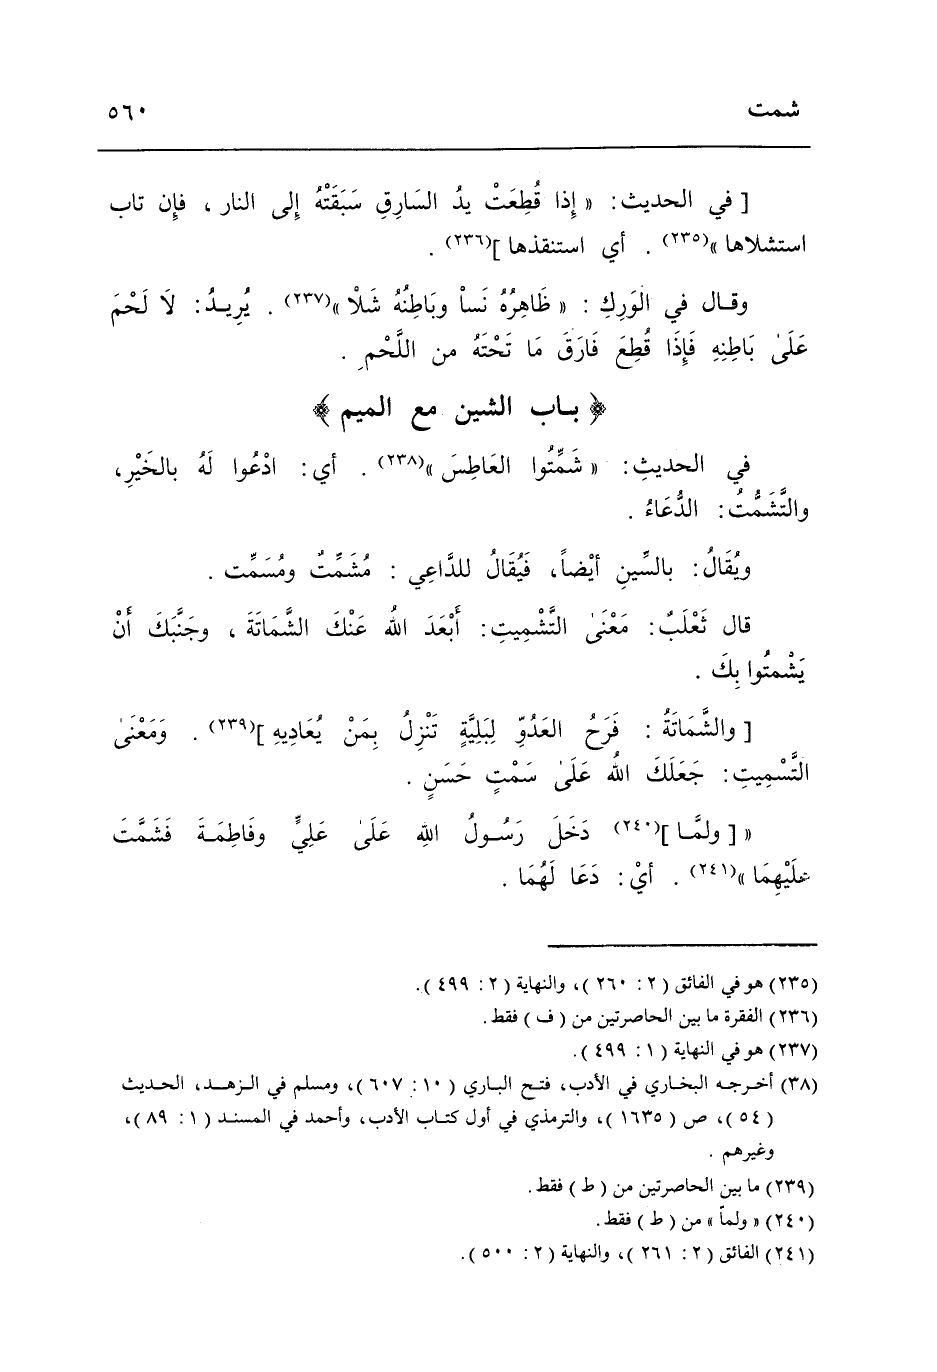 شمت
٥٦٠
[ في الحديث: « إِذا قُطِعَتْ يدُ السَارِقِ سَبَقَتْهُ إِلى النار ، فإِن تاب
استشلاها »(٢٣٥) . أي استنقذها ](٢٣٦) .
وقال في الوَرِكِ : « ظَاهِرُهُ نَساْ وبَاطِنُهُ شَلْا »(٢٣٧) . يُرِيدُ: لَا لَحْمَ
عَلَىٰ بَاطِنِهِ فَإِذَا قُطِعَ فَارَقَ مَا تَحْتَهُ من اللَّحْمِ .
﴿ باب الشين مع الميم ﴾
في الحديثِ: « شَمِّتُوا العَاطِسَ »(٢٣٨) . أي: ادْعُوا لَهُ بالخَيْرِ،
والتَّشَمُّتُ: الدُّعَاءُ .
ويُقَالُ: بالسِّينِ أيْضاً، فَيُقَالُ للدَّاعِي : مُشَمِّتٌ ومُسَمِّت .
قال ثَعْلَبٌ: مَعْنَىٰ التَّشْمِيتِ: أَبْعَدَ اللهُ عَنْكَ الشَّمَاتَةَ ، وجَنَّبَكَ أَنْ
يَشْمتُوا بِكَ .
[ والشَّمَاتَةُ : فَرَحُ العَدُوِّ لِبَلِيَّةٍ تَنْزِلُ بِمَنْ يُعَادِيهِ ](٢٣٩) . وَمَعْنَىٰ
التَّسْمِيتِ: جَعَلَكَ اللهُ عَلَىٰ سَمْتٍ حَسَنٍ .
« [ ولمَّا ](٢٤٠) دَخَلَ رَسُولُ اللهِ عَلَىٰ عَلِيٍّ وفَاطِمَةَ فَشَمَّتَ
عَلَيْهِمَا »(٢٤١) . أيْ: دَعَا لَهُمَا .
(٢٣٥) هو في الفائق ( ٢ : ٢٦٠ )، والنهاية ( ٢ : ٤٩٩ ).
(٢٣٦) الفقرة ما بين الحاصرتين من ( ف ) فقط.
(٢٣٧) هو في النهاية ( ١ : ٤٩٩ ).
(٣٨) أخرجه البخاري في الأدب، فتح الباري ( ١٠ : ٦٠٧ )، ومسلم في الزهد، الحديث
( ٥٤ )، ص ( ١٦٣٥ )، والترمذي في أول كتاب الأدب، وأحمد في المسند ( ١ : ٨٩ )،
وغيرهم .
(٢٣٩) ما بين الحاصرتين من ( ط ) فقط.
(٢٤٠) « ولماّ » من ( ط ) فقط.
(٢٤١) الفائق ( ٢ : ٢٦١ )، والنهاية ( ٢ : ٥٠٠ ).